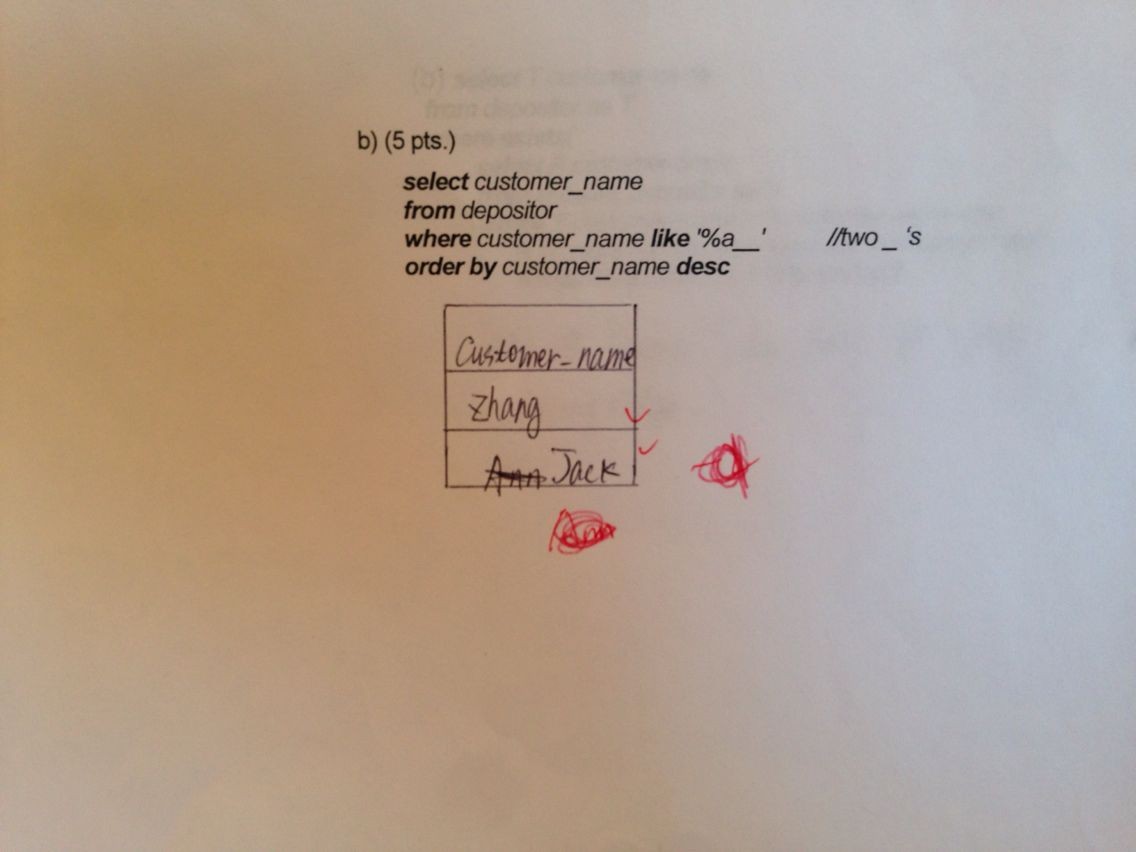 b) (5 pts.)
select customer_name
from depositor
where customer_name like '%a__' //two _ 's
order by customer_name desc
Customer_name
Zhang
Ann Jack